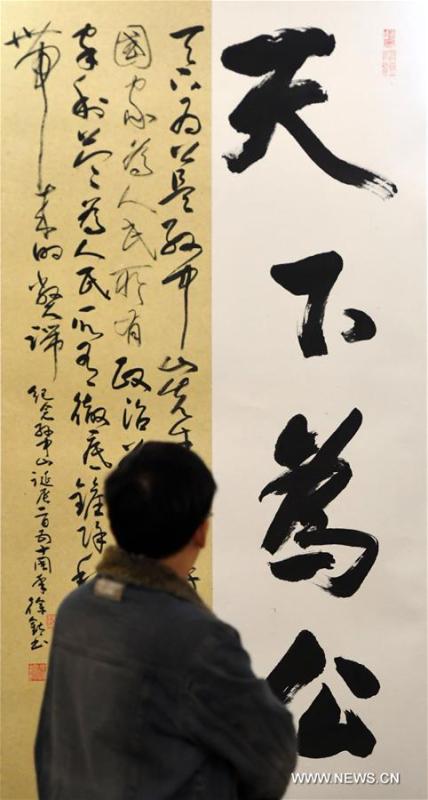 天下為公
天下為公是孫中山先生
國家為人民所有政治
利益為人民所 徹底鏟除
世帶來的弊端
紀念孫中山誕辰一百五十周年徐 書
WWW.NEWS.CN